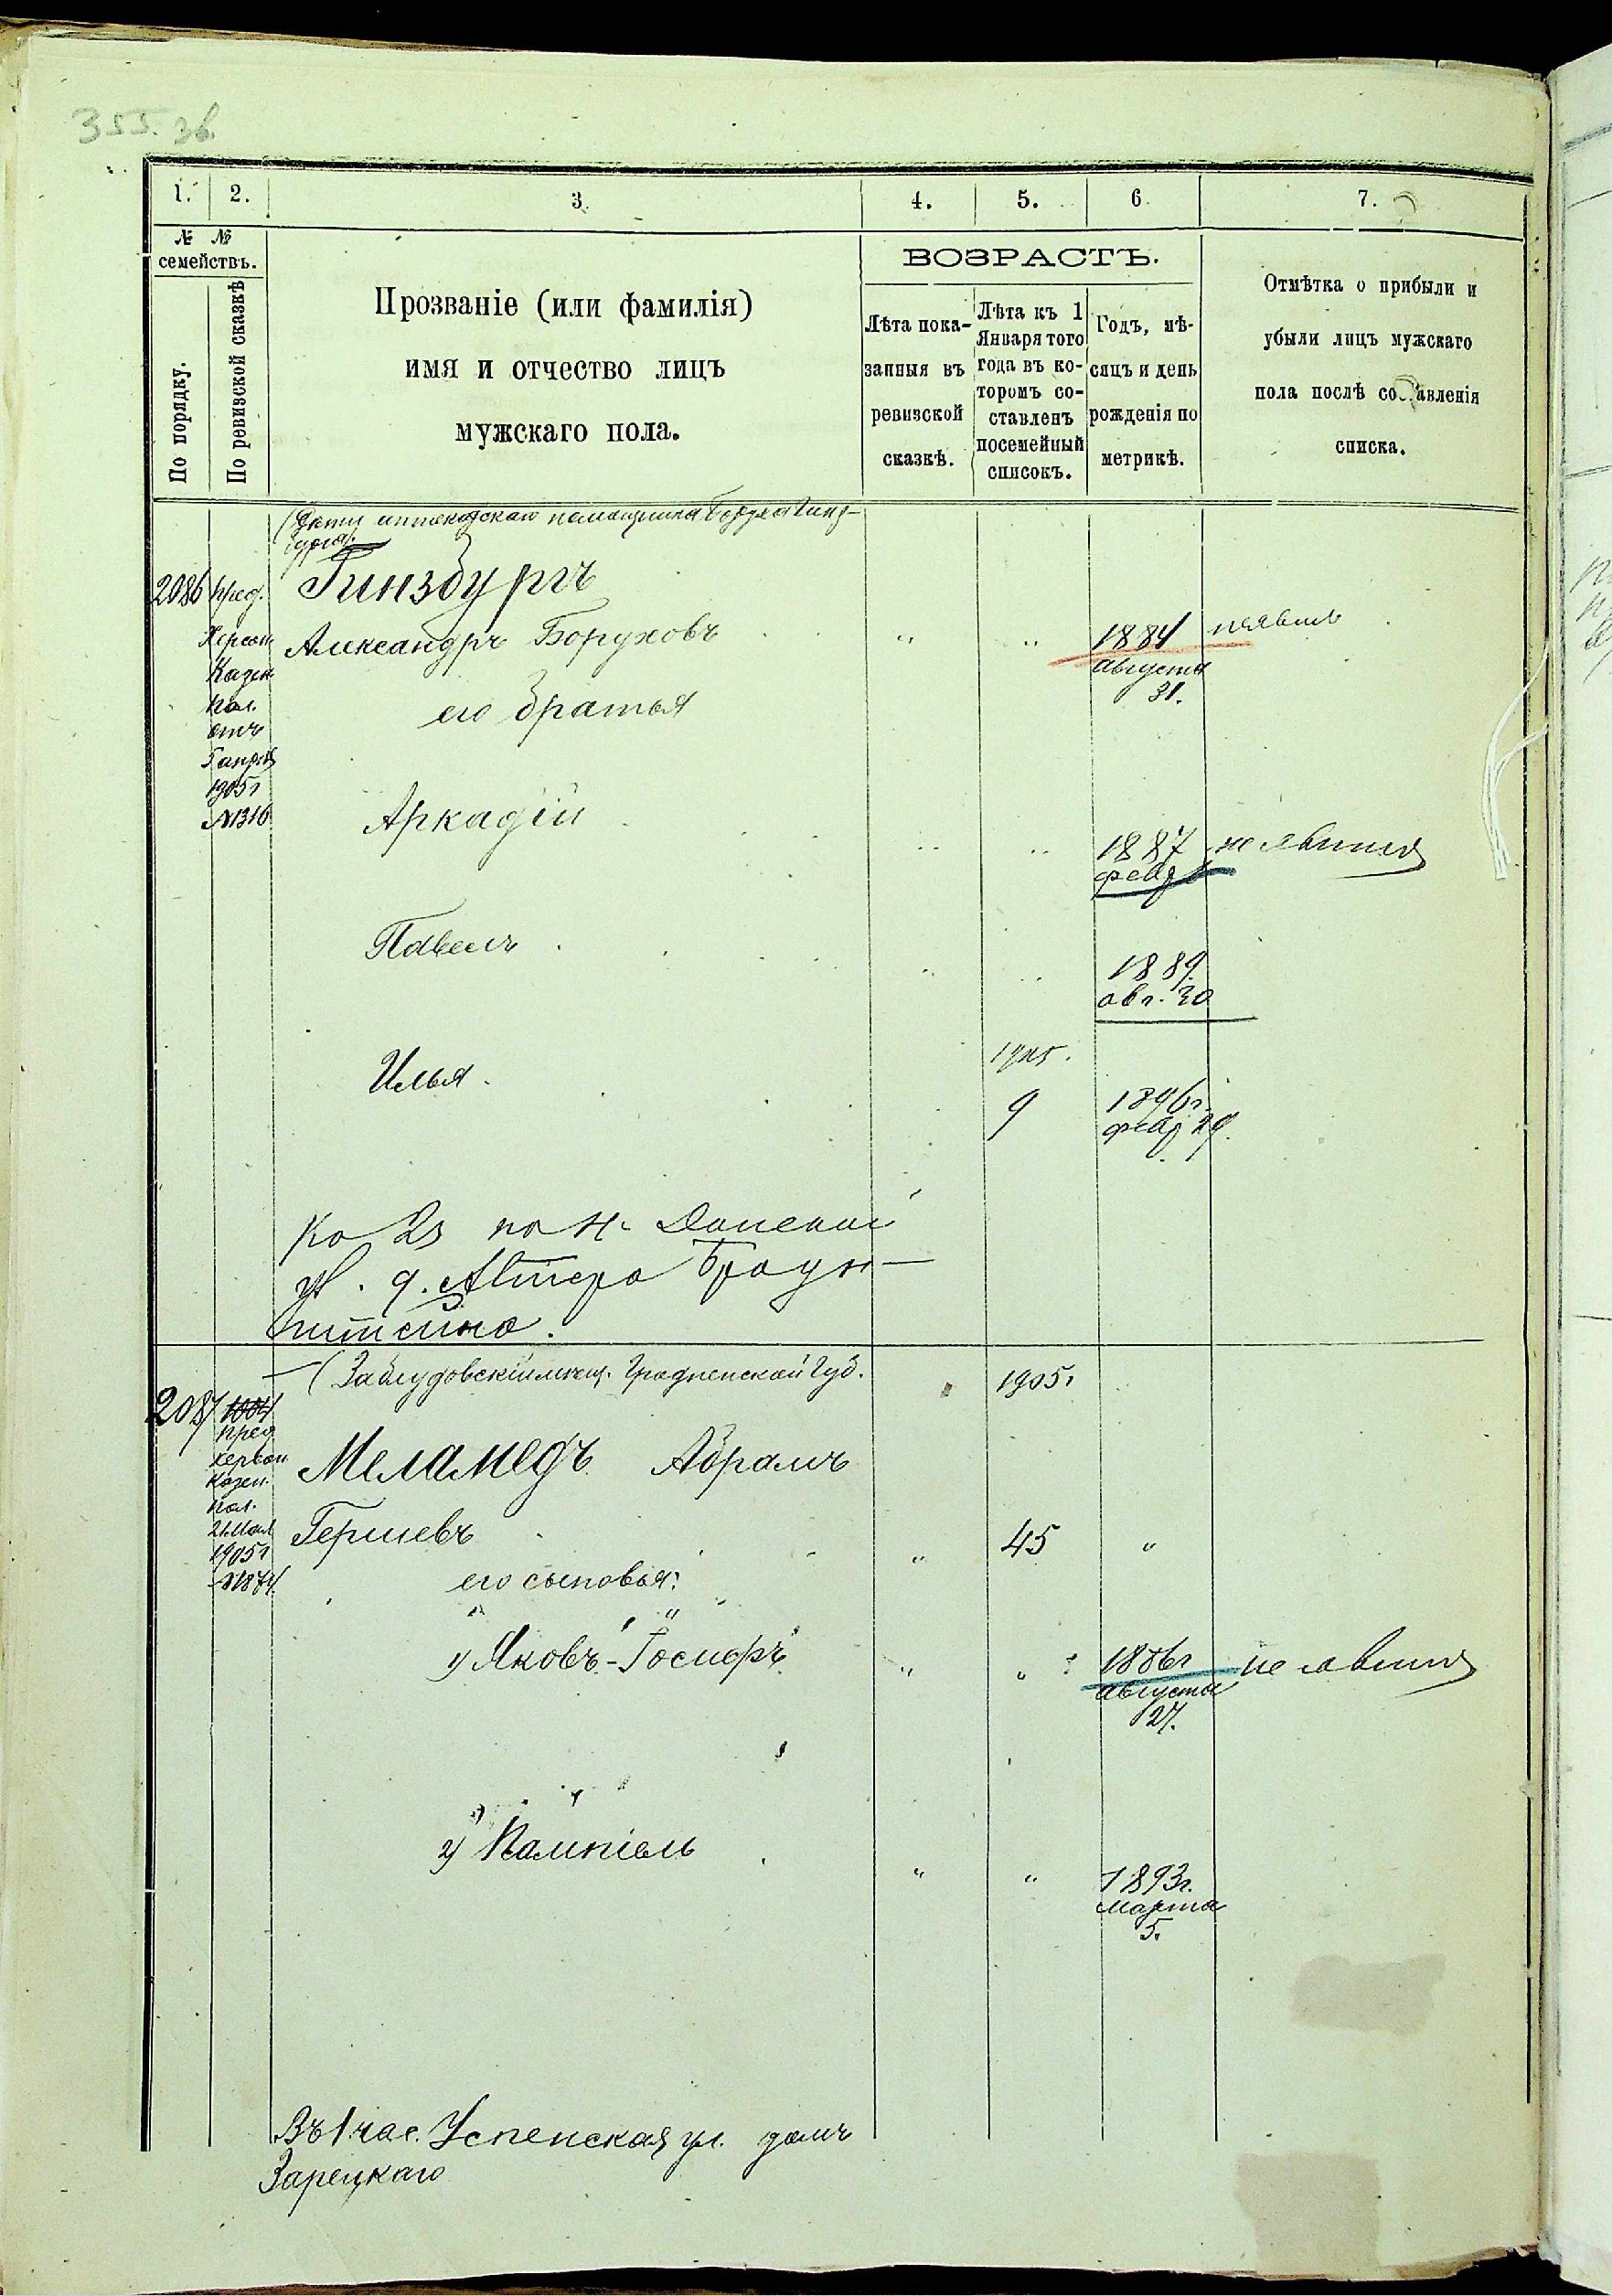 355. об.
1. 2. 3. 4. 5. 6. 7.
№ №
семействъ.
По порядку.
По ревизской сказкѣ
Прозваніе (или фамилія)
имя и отчество лицъ
мужскаго пола.
ВОЗРАСТЪ.
Лѣта пока-
занныя въ
ревизской
сказкѣ.
Лѣта къ 1
Января того
года въ ко-
торомъ со-
ставленъ
посемейный
списокъ.
Годъ, мѣ-
сяцъ и день
рожденія по
метрикѣ.
Отмѣтка о прибыли и
убыли лицъ мужскаго
пола послѣ составленія
списка.
(Дѣти аптекарскаго помощника Боруха Гинз-
бурга).
2086 пред. Гинзбургъ
Херсон.
Казен.
пал.
отъ
1905 г
№1316
Александръ Боруховъ " " 1884
августа
31.
его братья
Аркадій " " 1887 не явился
фев
Павелъ " " 1889
авг. 30
Илья 1905.
9 1896 г.
фев 29.
ул. д.
(Заблудовскій мѣщ. Гродненской Губ. 1905 г
2087 1004
пред
херсон
казен.
пал.
21 Мая
1905 г
№1874.
Меламедъ Абрамъ
Гершевъ " 45 "
его сыновья:
1) Яковъ-Госифъ " " 1886 г не явился
августа
27.
2) " " 1893 г.
марта
5.
Въ 1 час. Успенская ул. домъ
Зарецкаго